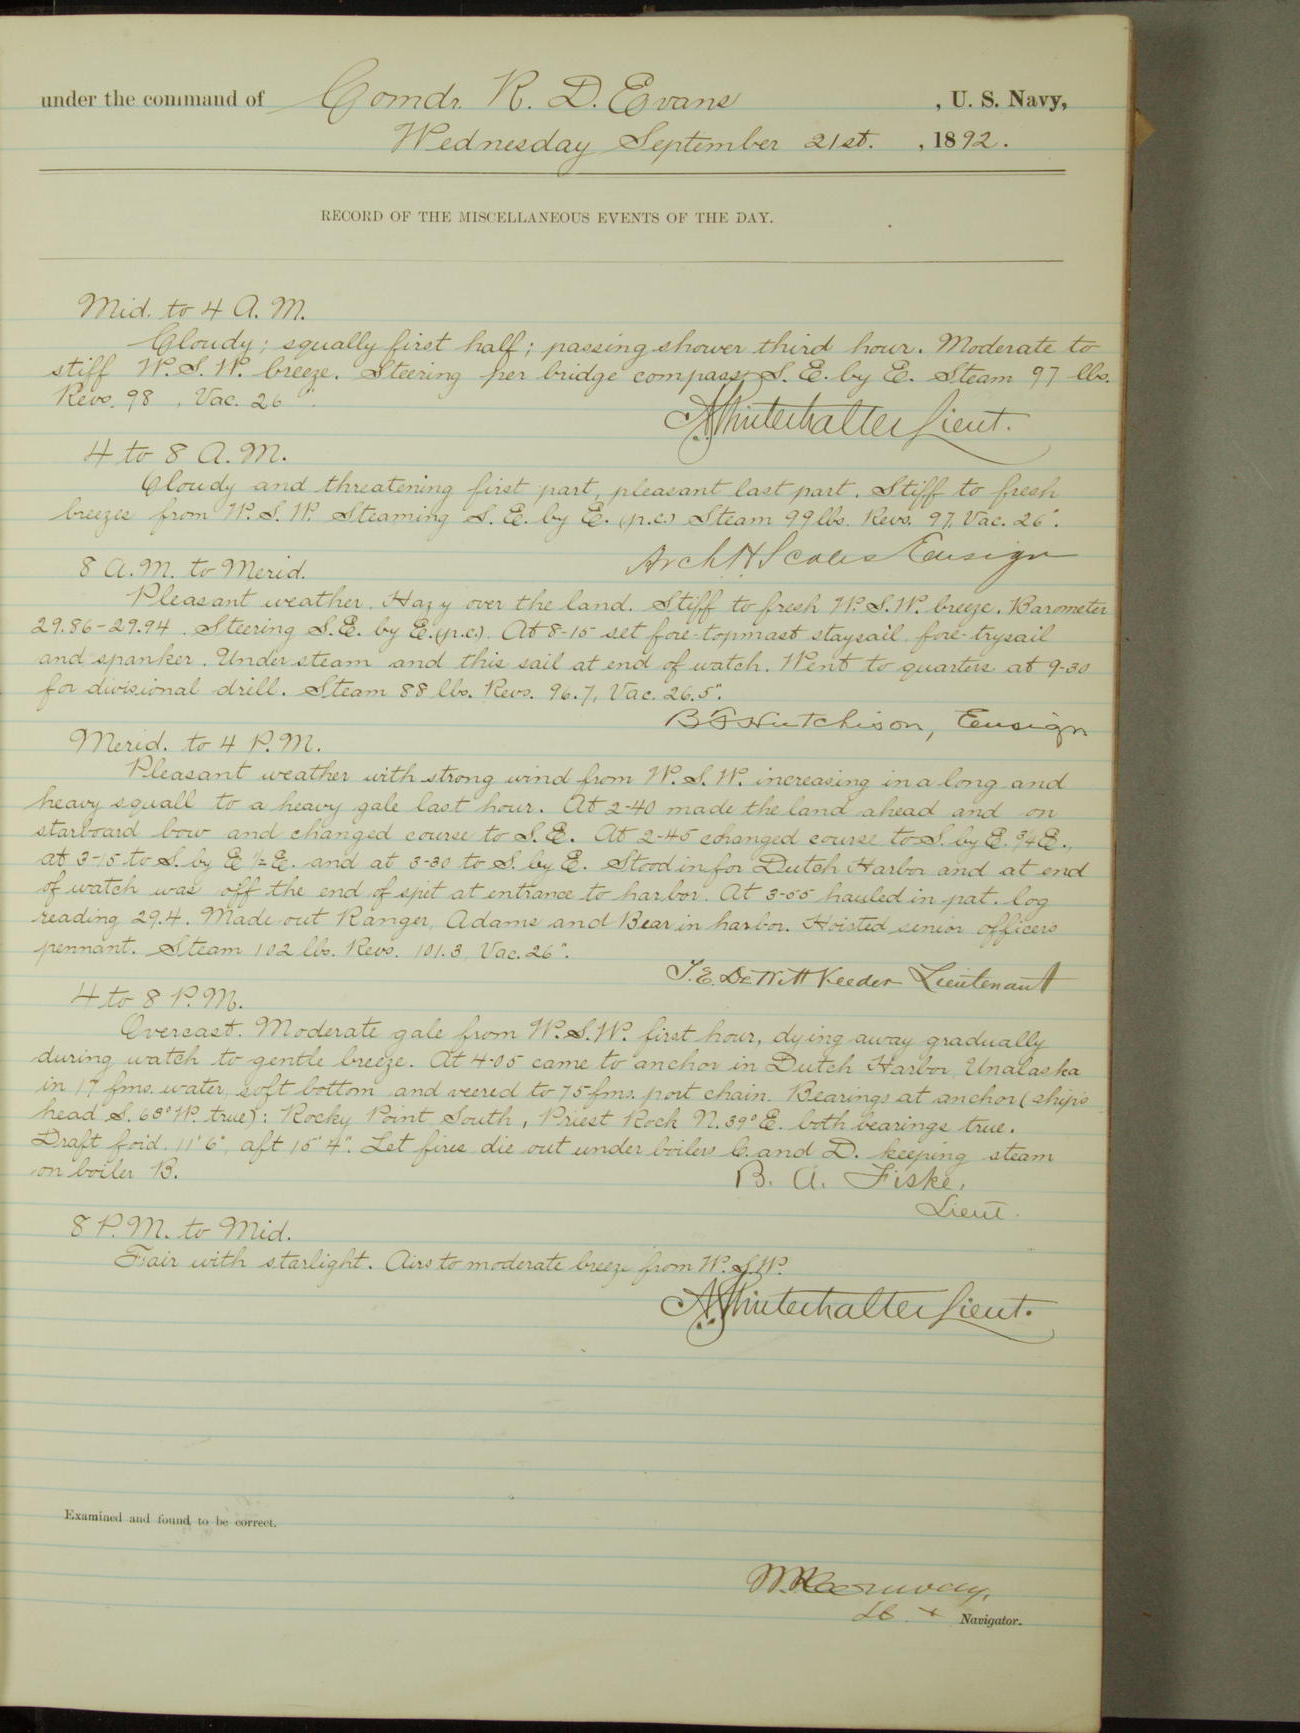 under the command of Comdr. R. D. Evans, U. S. Navy,
Wednesday September 21st., 1892.
RECORD OF THE MISCELLANEOUS EVENTS OF THE DAY.
Mid. to 4 A. M.
Cloudy; squally first half; passing shower third hour. Moderate to
stiff W. S. W. breeze. Steering per bridge compass S. E. by E. Steam 97 lbs.
Revs. 98, Vac. 26".
A G Winterhalter Lieut.
4 to 8 A. M.
Cloudy and threatening first part, pleasant last part. Stiff to fresh
breezes from W. S. W. Steaming S. E. by E. (p.c.) Steam 99 lbs. Revs. 97, Vac. 26".
Arch H Scales Ensign
8 A. M. to Merid.
Pleasant weather. Hazy over the land. Stiff to fresh W. S. W. breeze. Barometer
29.86-29.94. Steering S. E. by E. (p.c.). At 8-15 set fore-topmast staysail, fore-trysail
and spanker. Under steam and this sail at end of watch. Went to quarters at 9-30
for divisional drill. Steam 88 lbs. Revs. 96.7, Vac. 26.5".
B F Hutchison, Ensign
Merid. to 4 P. M.
Pleasant weather with strong wind from W. S. W. increasing in a long and
heavy squall to a heavy gale last hour. At 2-40 made the land ahead and on
starboard bow and changed course to S. E. At 2-45 changed course to S. by E. ¾ E.,
at 3-15 to S. by E ½ E. and at 3-30 to S. by E. Stood in for Dutch Harbor and at end
of watch was off the end of spit at entrance to harbor. At 3-55 hauled in pat. log
reading 29.4. Made out Ranger, Adams and Bear in harbor. Hoisted senior officers
pennant. Steam 102 lbs. Revs. 101.3, Vac. 26".
T. E. DeWitt Veeder Lieutenant
4 to 8 P. M.
Overcast. Moderate gale from W. S. W. first hour, dying away gradually
during watch to gentle breeze. At 4-05 came to anchor in Dutch Harbor, Unalaska
in 17 fms. water, soft bottom and veered to 75 fms. port chain. Bearings at anchor (ships
head S. 68° W. true): Rocky Point South, Priest Rock N. 39° E. both bearings true.
Draft for'd. 11' 6", aft 15' 4". Let fires die out under boilers C. and D. keeping steam
on boiler B.
B. A. Fiske,
Lieut.
8 P. M. to Mid.
Fair with starlight. Airs to moderate breeze from W. S. W.
A G Winterhalter Lieut.
Examined and found to be correct.
Navigator.